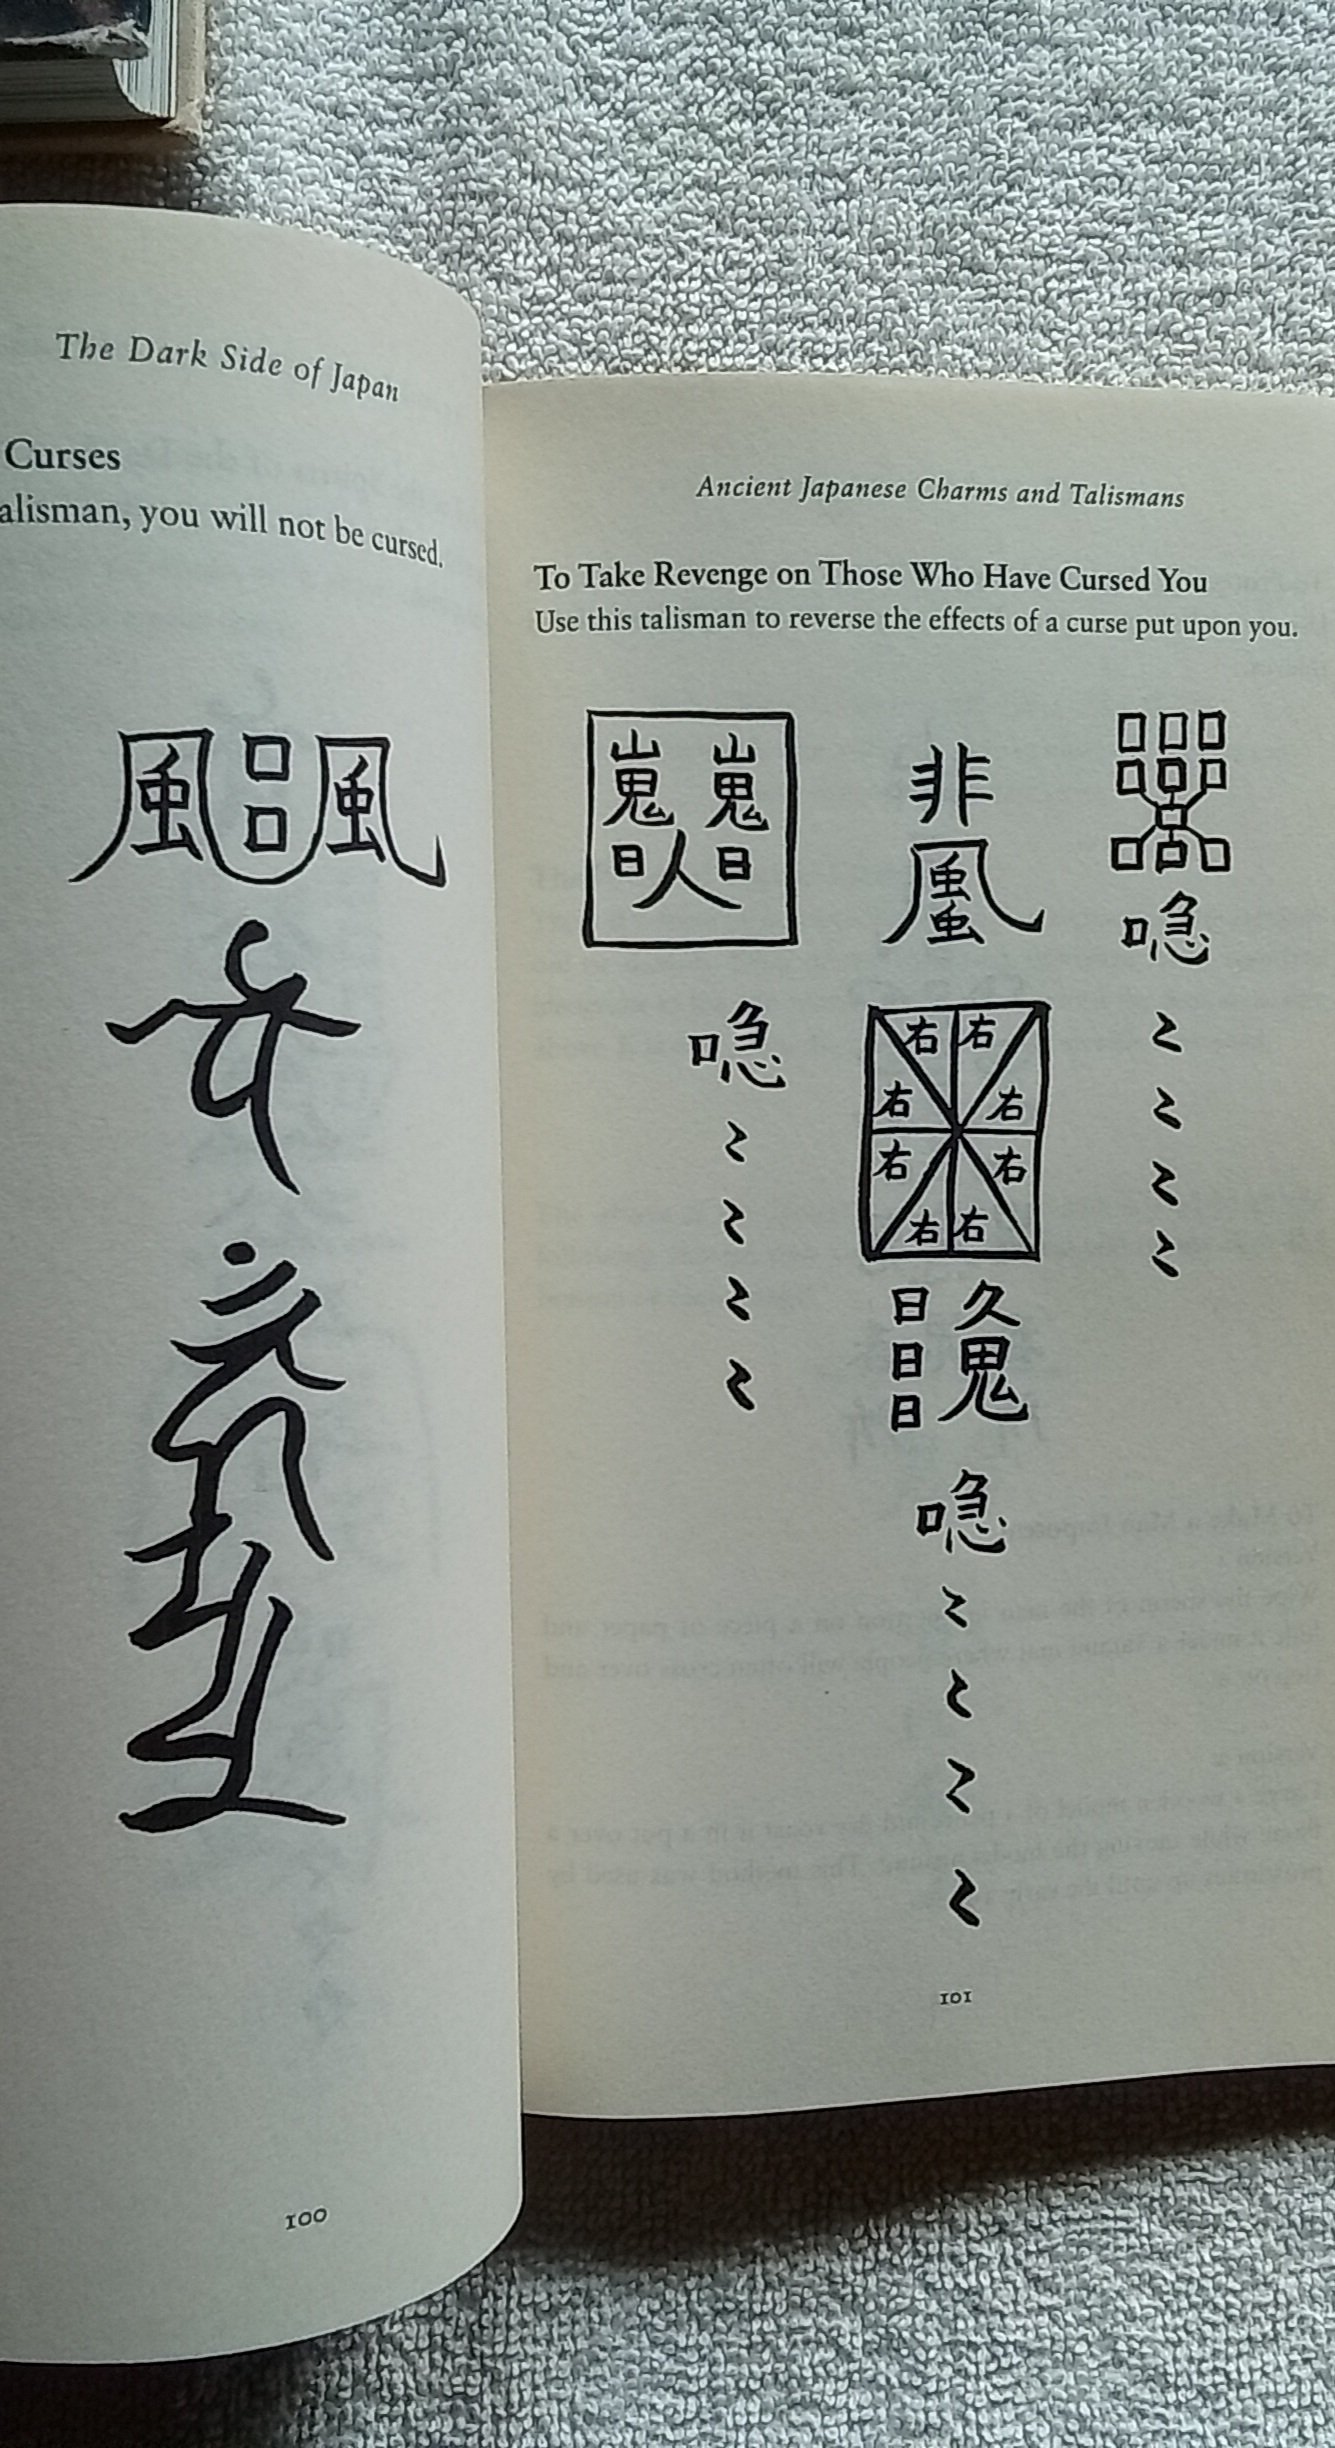 The Dark Side of Japan
Curses
alisman, you will not be cursed.
風 風
100
Ancient Japanese Charms and Talismans
To Take Revenge on Those Who Have Cursed You
Use this talisman to reverse the effects of a curse put upon you.
山 山
鬼 鬼
日 人 日
非
右 右
右 右
右 右
右 右
日 久
日 鬼
日
101